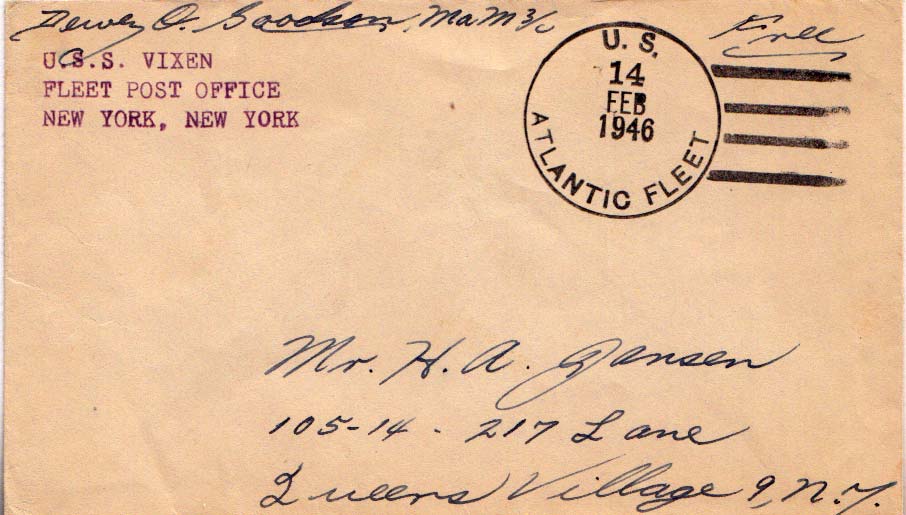 Dewey O. Goodson, MaM 3/c
Free
U.S.S. VIXEN
FLEET POST OFFICE
NEW YORK, NEW YORK
U. S.
14
FEB
1946
ATLANTIC FLEET
Mr. H. A. Jansen
105-14 - 217 Lane
Queens Village 9, N.Y.